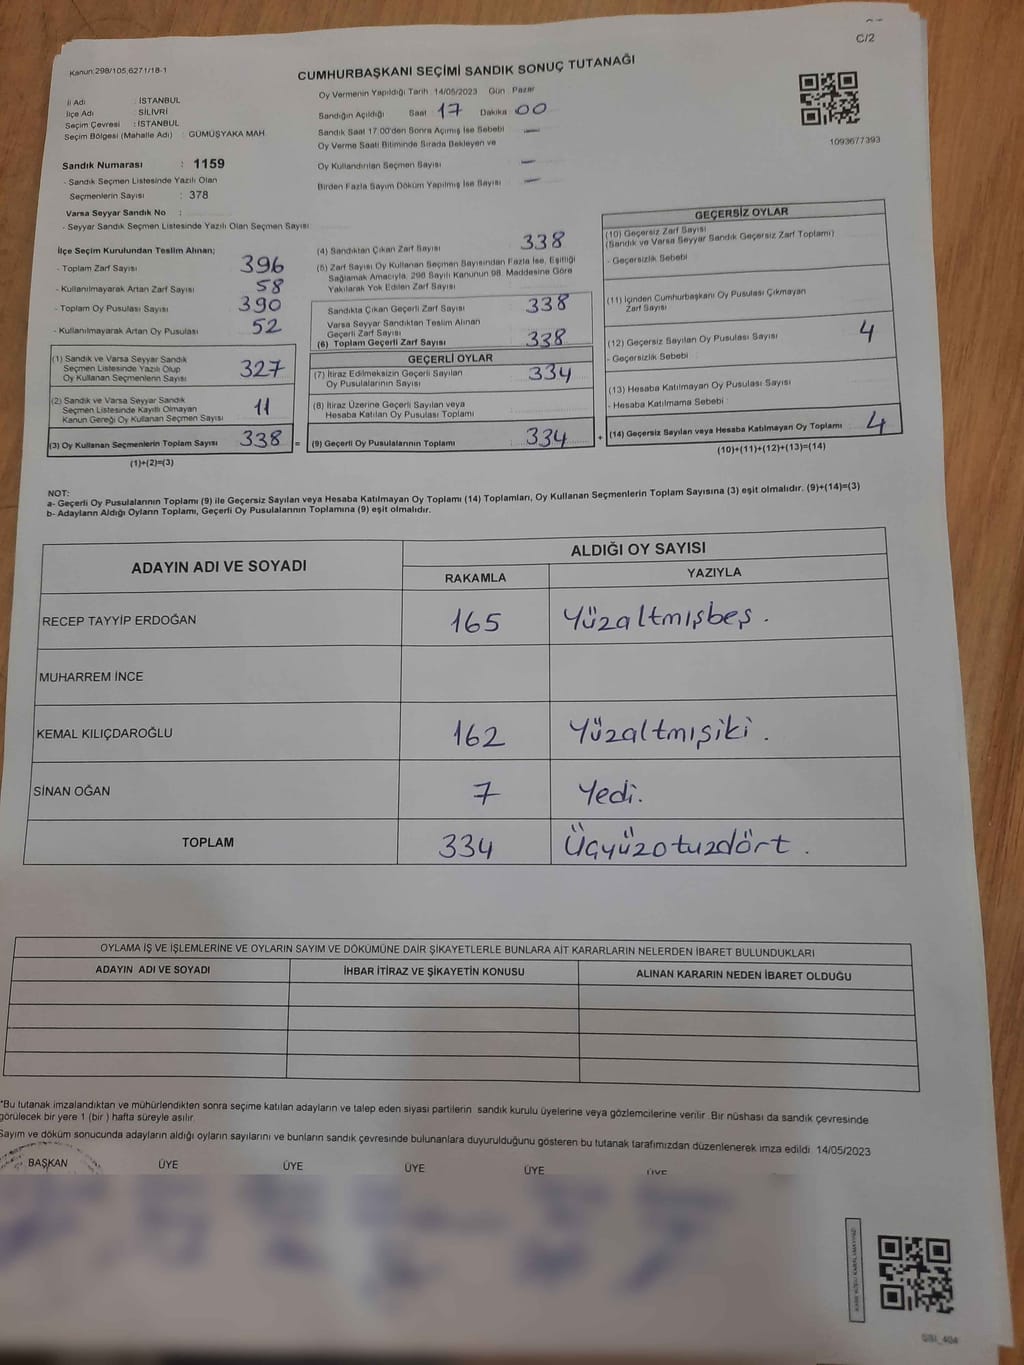 C/2
Kanun:298/105,6271/18-1
CUMHURBAŞKANI SEÇİMİ SANDIK SONUÇ TUTANAĞI
İl Adı : İSTANBUL
İlçe Adı : SİLİVRİ
Seçim Çevresi : İSTANBUL
Seçim Bölgesi (Mahalle Adı) : GÜMÜŞYAKA MAH.
Oy Vermenin Yapıldığı Tarih : 14/05/2023 Gün : Pazar
Sandığın Açıldığı Saat 17 Dakika 00
Sandık Saat 17.00'den Sonra Açımış İse Sebebi —
Oy Verme Saati Bitiminde Sırada Bekleyen ve
Oy Kullandırılan Seçmen Sayısı —
Birden Fazla Sayım Döküm Yapılmış İse Sayısı —
1093677393
Sandık Numarası : 1159
- Sandık Seçmen Listesinde Yazılı Olan
Seçmenlerin Sayısı : 378
Varsa Seyyar Sandık No :
- Seyyar Sandık Seçmen Listesinde Yazılı Olan Seçmen Sayısı
İlçe Seçim Kurulundan Teslim Alınan;
- Toplam Zarf Sayısı 396
- Kullanılmayarak Artan Zarf Sayısı 58
- Toplam Oy Pusulası Sayısı 390
- Kullanılmayarak Artan Oy Pusulası 52
(1) Sandık ve Varsa Seyyar Sandık
Seçmen Listesinde Yazılı Olup
Oy Kullanan Seçmenlerin Sayısı 327
(2) Sandık ve Varsa Seyyar Sandık
Seçmen Listesinde Kayıtlı Olmayan
Kanun Gereği Oy Kullanan Seçmen Sayısı 11
(3) Oy Kullanan Seçmenlerin Toplam Sayısı 338 =
(1)+(2)=(3)
(4) Sandıktan Çıkan Zarf Sayısı 338
(5) Zarf Sayısı Oy Kullanan Seçmen Sayısından Fazla İse, Eşitliği
Sağlamak Amacıyla, 298 Sayılı Kanunun 98. Maddesine Göre
Yakılarak Yok Edilen Zarf Sayısı
Sandıkta Çıkan Geçerli Zarf Sayısı 338
Varsa Seyyar Sandıktan Teslim Alınan
Geçerli Zarf Sayısı
(6) Toplam Geçerli Zarf Sayısı 338
GEÇERLİ OYLAR
(7) İtiraz Edilmeksizin Geçerli Sayılan
Oy Pusulalarının Sayısı 334
(8) İtiraz Üzerine Geçerli Sayılan veya
Hesaba Katılan Oy Pusulası Toplamı
(9) Geçerli Oy Pusulalarının Toplamı 334 +
GEÇERSİZ OYLAR
(10) Geçersiz Zarf Sayısı
(Sandık ve Varsa Seyyar Sandık Geçersiz Zarf Toplamı)
- Geçersizlik Sebebi
(11) İçinden Cumhurbaşkanı Oy Pusulası Çıkmayan
Zarf Sayısı
(12) Geçersiz Sayılan Oy Pusulası Sayısı 4
- Geçersizlik Sebebi
(13) Hesaba Katılmayan Oy Pusulası Sayısı
- Hesaba Katılmama Sebebi :
(14) Geçersiz Sayılan veya Hesaba Katılmayan Oy Toplamı 4
(10)+(11)+(12)+(13)=(14)
NOT:
a- Geçerli Oy Pusulalarının Toplamı (9) ile Geçersiz Sayılan veya Hesaba Katılmayan Oy Toplamı (14) Toplamları, Oy Kullanan Seçmenlerin Toplam Sayısına (3) eşit olmalıdır. (9)+(14)=(3)
b- Adayların Aldığı Oyların Toplamı, Geçerli Oy Pusulalarının Toplamına (9) eşit olmalıdır.
ADAYIN ADI VE SOYADI
ALDIĞI OY SAYISI
RAKAMLA YAZIYLA
RECEP TAYYİP ERDOĞAN 165 Yüzaltmışbeş.
MUHARREM İNCE
KEMAL KILIÇDAROĞLU 162 Yüzaltmışiki.
SİNAN OĞAN 7 Yedi.
TOPLAM 334 Üçyüzotuzdört.
OYLAMA İŞ VE İŞLEMLERİNE VE OYLARIN SAYIM VE DÖKÜMÜNE DAİR ŞİKAYETLERLE BUNLARA AİT KARARLARIN NELERDEN İBARET BULUNDUKLARI
ADAYIN ADI VE SOYADI İHBAR İTİRAZ VE ŞİKAYETİN KONUSU ALINAN KARARIN NEDEN İBARET OLDUĞU
*Bu tutanak imzalandıktan ve mühürlendikten sonra seçime katılan adayların ve talep eden siyasi partilerin sandık kurulu üyelerine veya gözlemcilerine verilir. Bir nüshası da sandık çevresinde
görülecek bir yere 1 (bir) hafta süreyle asılır.
Sayım ve döküm sonucunda adayların aldığı oyların sayılarını ve bunların sandık çevresinde bulunanlara duyurulduğunu gösteren bu tutanak tarafımızdan düzenlenerek imza edildi. 14/05/2023
BAŞKAN ÜYE ÜYE ÜYE ÜYE ÜYE